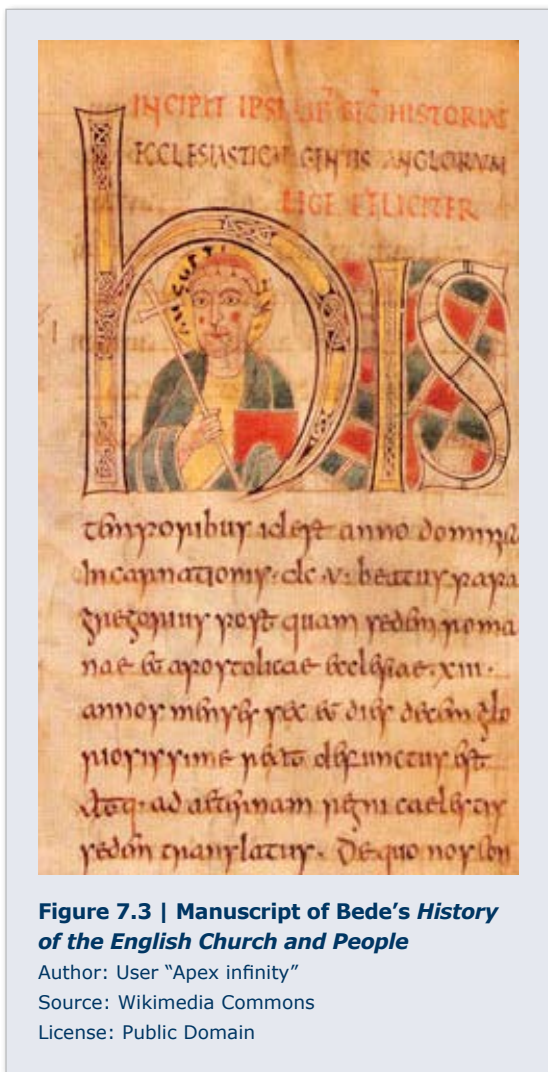 INCIPIT HISTORIAE
ECCLESIASTICAE GENTIS ANGLORUM
LEGE FELICITER
AUGUSTI
hIS
temporibus id est anno dominicae
Incarnationis · dc · v · beatus papa
gregorius post quam sedem roma
nae et apostolicae ecclesiae · xiii ·
annos menses sex et dies decem glo
riosissime rexit defunctus est
atq· ad aeternam regni caelestis
sedem translatus. De quo nos con
Figure 7.3 | Manuscript of Bede’s History
of the English Church and People
Author: User “Apex infinity”
Source: Wikimedia Commons
License: Public Domain